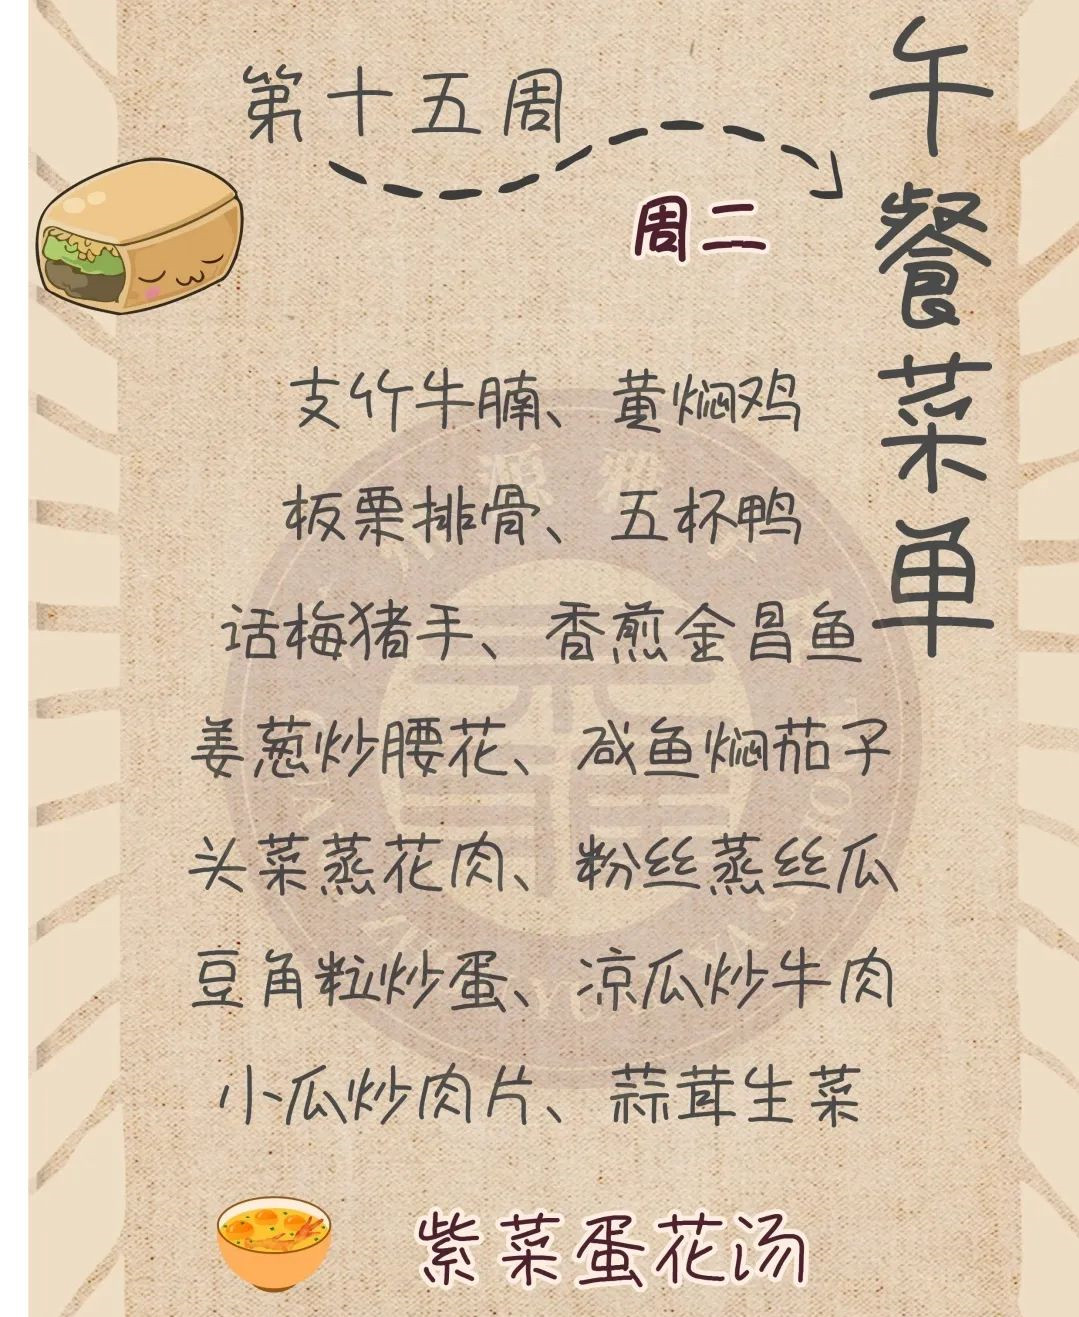 第十五周
周二
午餐菜单
支竹牛腩、黄焖鸡
板栗排骨、五杯鸭
话梅猪手、香煎金昌鱼
姜葱炒腰花、咸鱼焖茄子
头菜蒸花肉、粉丝蒸丝瓜
豆角粒炒蛋、凉瓜炒牛肉
小瓜炒肉片、蒜茸生菜
紫菜蛋花汤